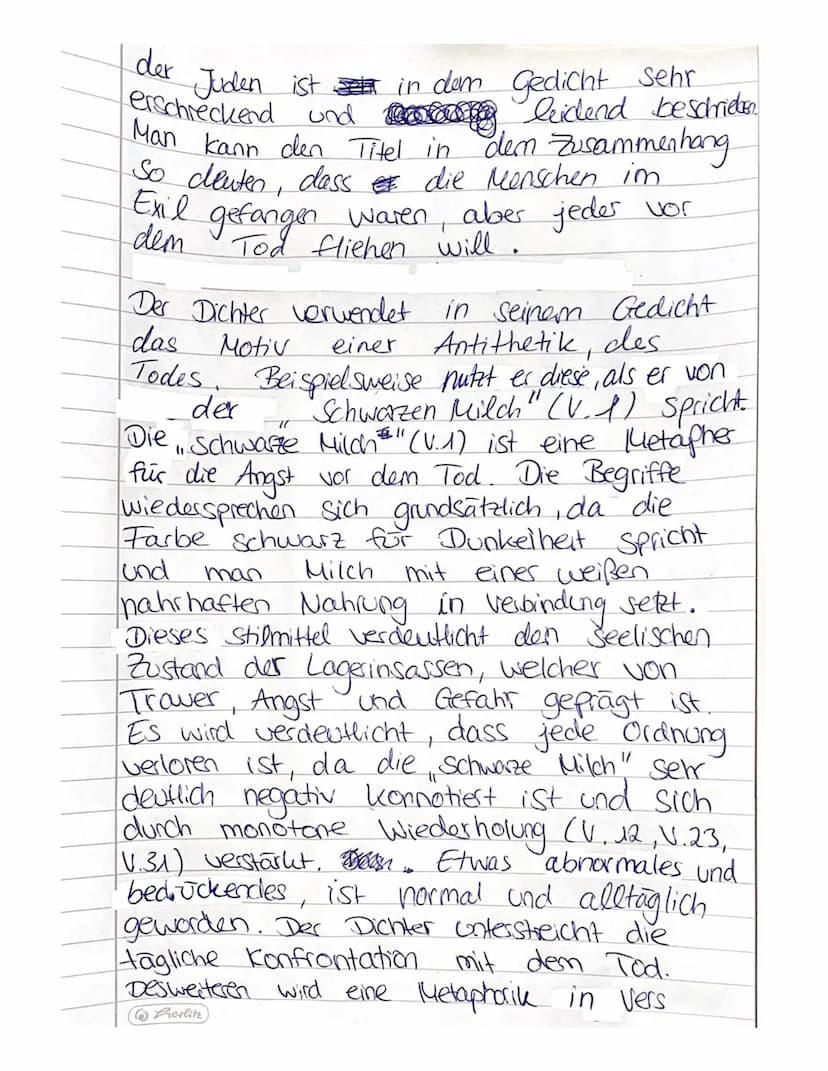 der Juden ist in dem Gedicht sehr
erschreckend und leidend beschrieben.
Man kann den Titel in dem Zusammenhang
So deuten, dass die Menschen im
Exil gefangen waren, aber jeder vor
dem Tod fliehen will.
Der Dichter verwendet in seinem Gedicht
das Motiv einer Antithetik, des
Todes. Beispielsweise nutzt er diese, als er von
der „Schwarzen Milch" (V.1) spricht.
Die „Schwarze Milch" (V.1) ist eine Metapher
für die Angst vor dem Tod. Die Begriffe
wiedersprechen sich grundsätzlich, da die
Farbe schwarz für Dunkelheit spricht
und man Milch mit einer weißen
nahrhaften Nahrung in Verbindung setzt.
Dieses Stilmittel verdeutlicht den seelischen
Zustand der Lagerinsassen, welcher von
Trauer, Angst und Gefahr geprägt ist.
Es wird verdeutlicht, dass jede Ordnung
verloren ist, da die „Schwarze Milch" sehr
deutlich negativ konnotiert ist und sich
durch monotone Wiederholung (V.12, V.23,
V.31) verstärkt. Etwas abnormales und
bedrückendes, ist normal und alltäglich
geworden. Der Dichter unterstreicht die
tägliche Konfrontation mit dem Tod.
Desweiteren wird eine Metaphorik in Vers
Herlitz